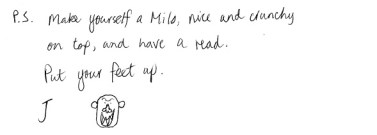 P.S. Make yourself a Milo, nice and crunchy
on top, and have a read.
Put your feet up.
J